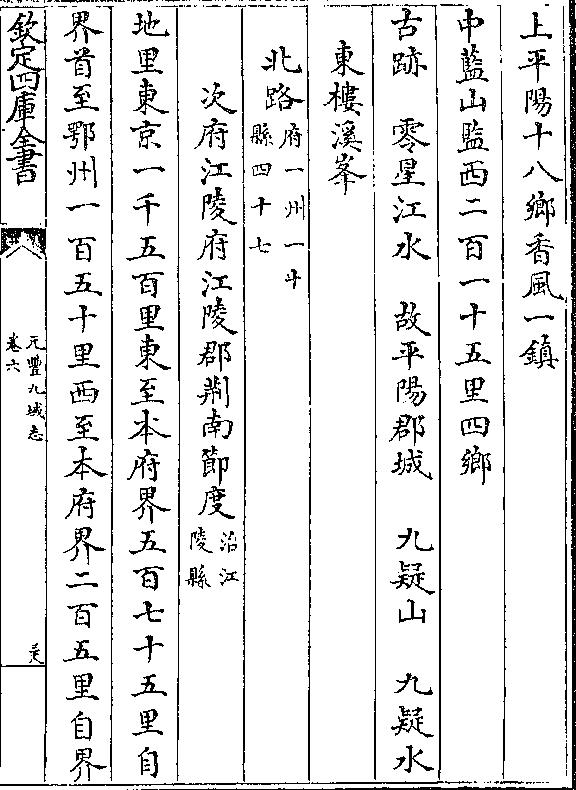 上平陽十八鄉香風一鎮
中藍山監西二百一十五里四鄉
古跡　零星江水　故平陽郡城　九疑山　九疑水
東樓溪峯
北路府一州一斗
縣四十七
次府江陵府江陵郡荆南節度治江
陵縣
地里東京一千五百里東至本府界五百七十五里自
界首至鄂州一百五十里西至本府界二百五里自界
欽定四庫全書
元豐九域志
卷六